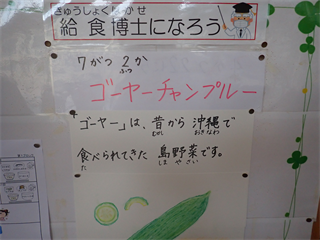 きゅうしょくはかせ
給食博士になろう
7がつ2か
ふつ
ゴーヤーチャンプルー
「ゴーヤー」は、昔から沖縄で
むかし おきなわ
食べられてきた 島野菜です。
た しまやさい